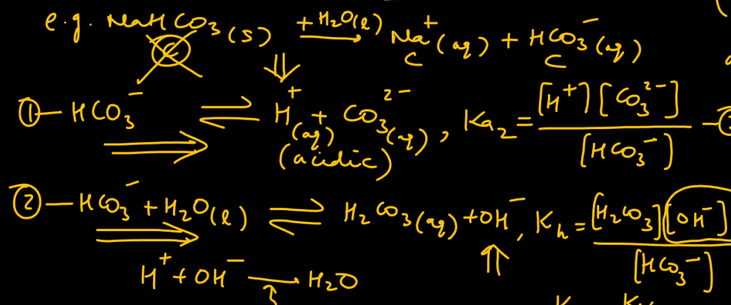 e.g. NaHCO₃(s) +H₂O(l) → Na⁺(aq) + HCO₃⁻(aq)
C C C
⇓
① — HCO₃⁻ ⇌ H⁺(aq) + CO₃²⁻(aq), Ka₂ = [H⁺][CO₃²⁻] / [HCO₃⁻]
(acidic)
② — HCO₃⁻ + H₂O(l) ⇌ H₂CO₃(aq) + OH⁻, Kh = [H₂CO₃][OH⁻] / [HCO₃⁻]
H⁺ + OH⁻ → H₂O